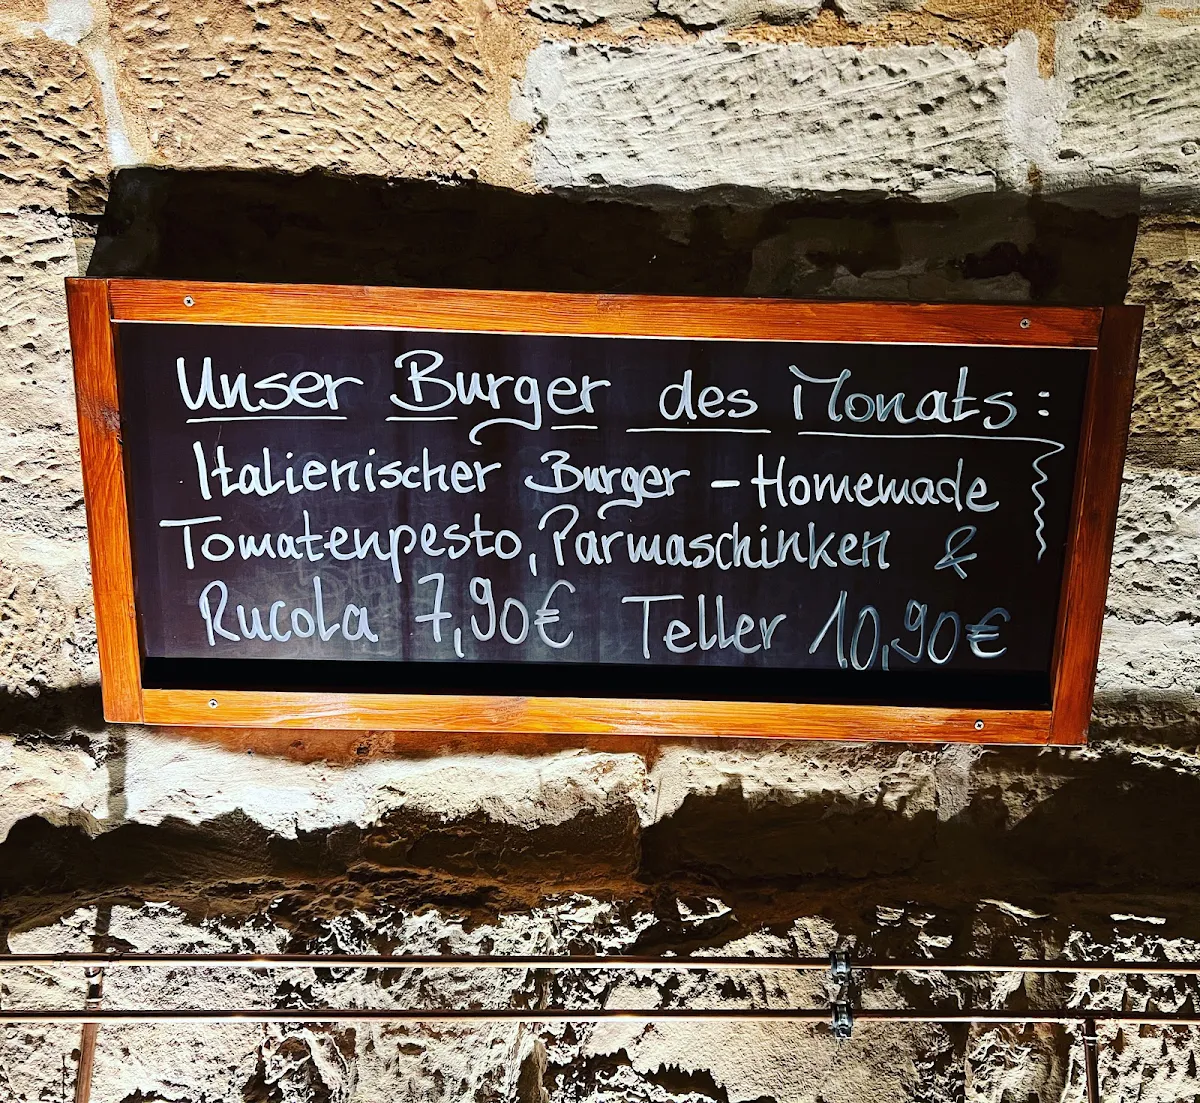 Unser Burger des Monats:
Italienischer Burger - Homemade
Tomatenpesto, Parmaschinken &
Rucola 7,90€ Teller 10,90€